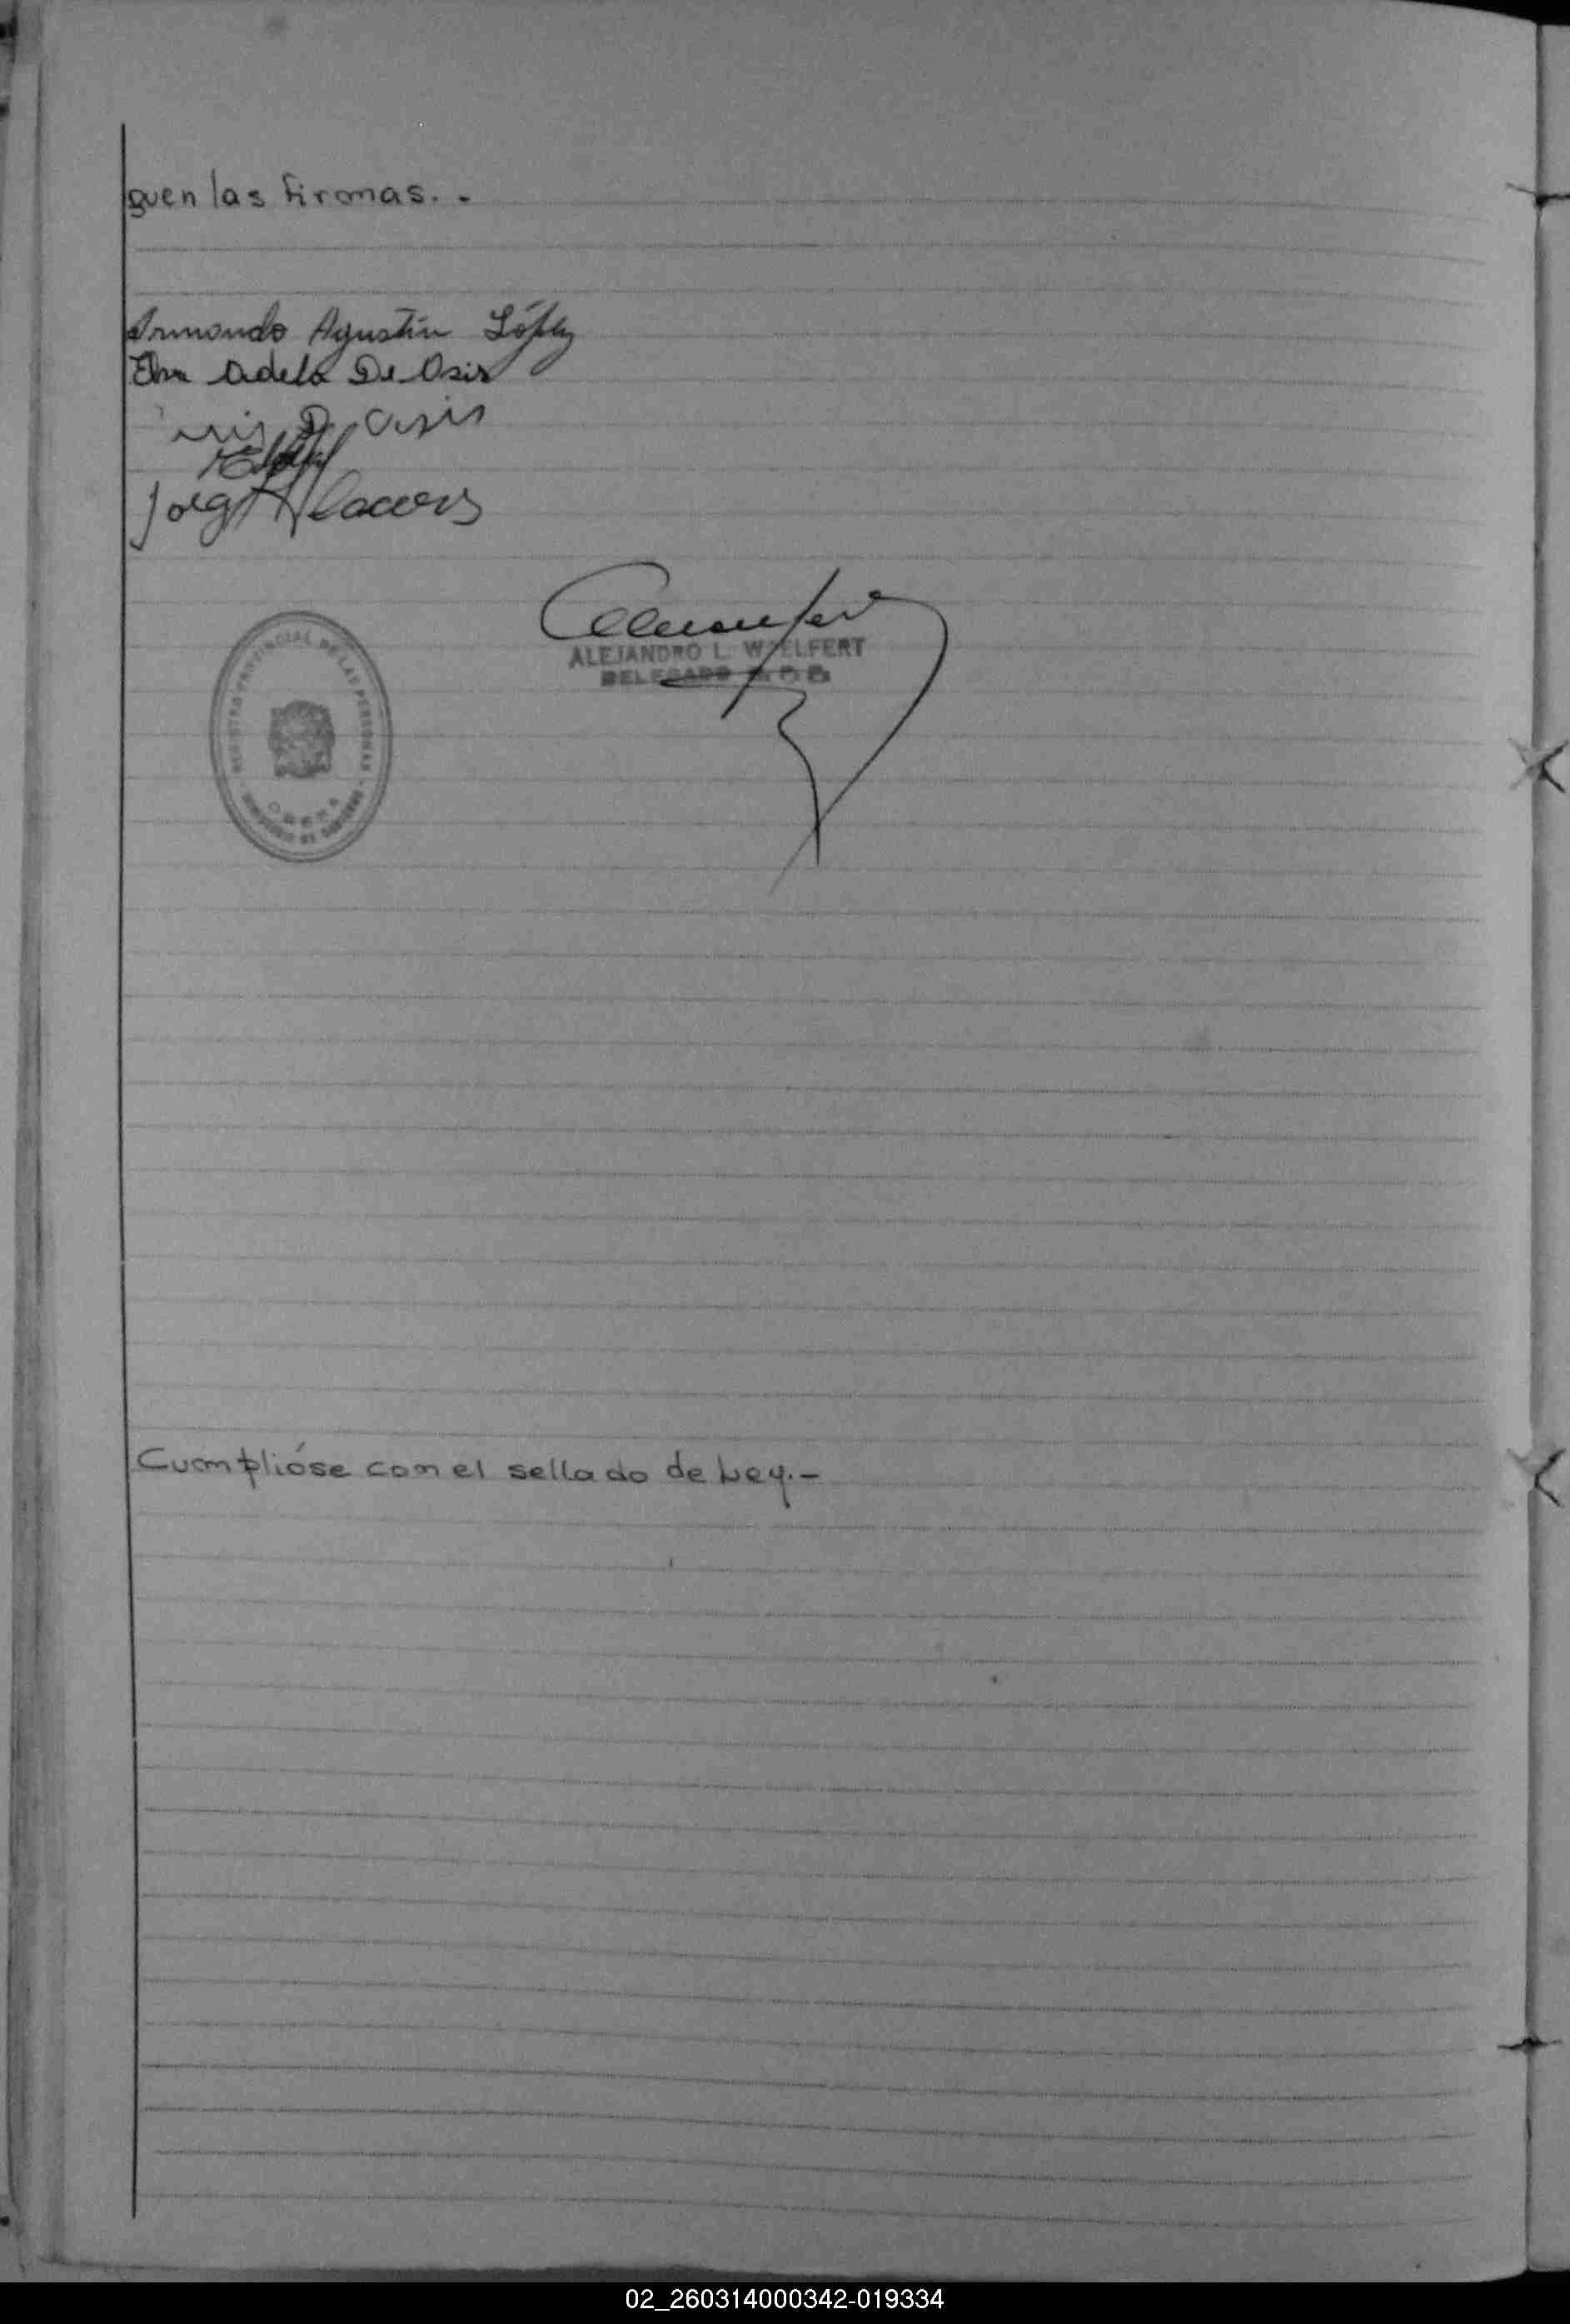 guen las firmas. -
Armando Agustín López
Elva Adela De Asis
De Asis
Jorge
ALEJANDRO L. WOELFERT
DELEGADO
REGISTRO PROVINCIAL DE LAS PERSONAS
MINISTERIO DE GOBIERNO
Cumplióse con el sellado de Ley.-
02_260314000342-019334